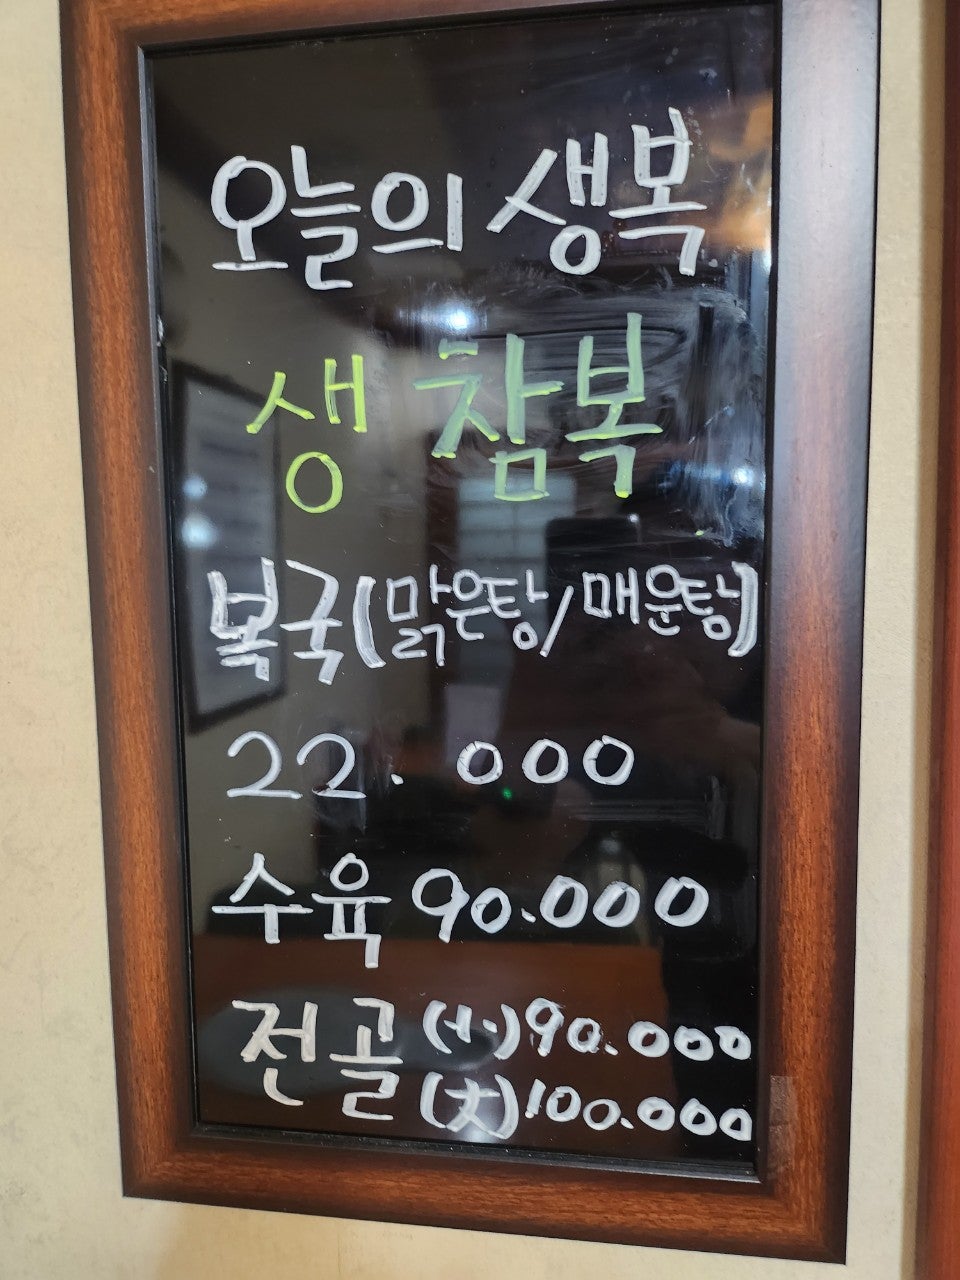 오늘의 생복
생 참복
복국(맑은탕/매운탕)
22.000
수육 90.000
전골 (小)90.000
(大)100.000